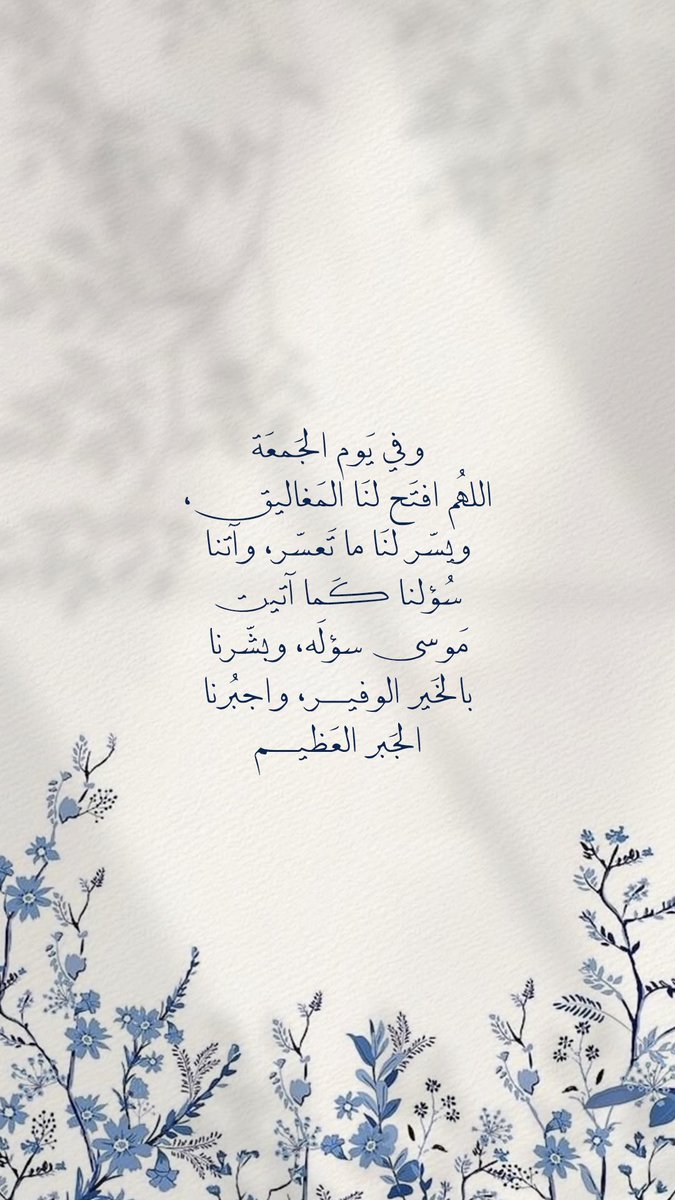 وفي يَوم الجَمعَة
اللهُم افتَح لنَا المَغاليق،
ويسّر لنَا ما تَعسّر، وآتنا
سُؤلنا كَما آتيت
مَوسى سؤلَه، وبشّرنا
بالخَير الوفيــر، واجبُرنا
الجَبر العَظيــم